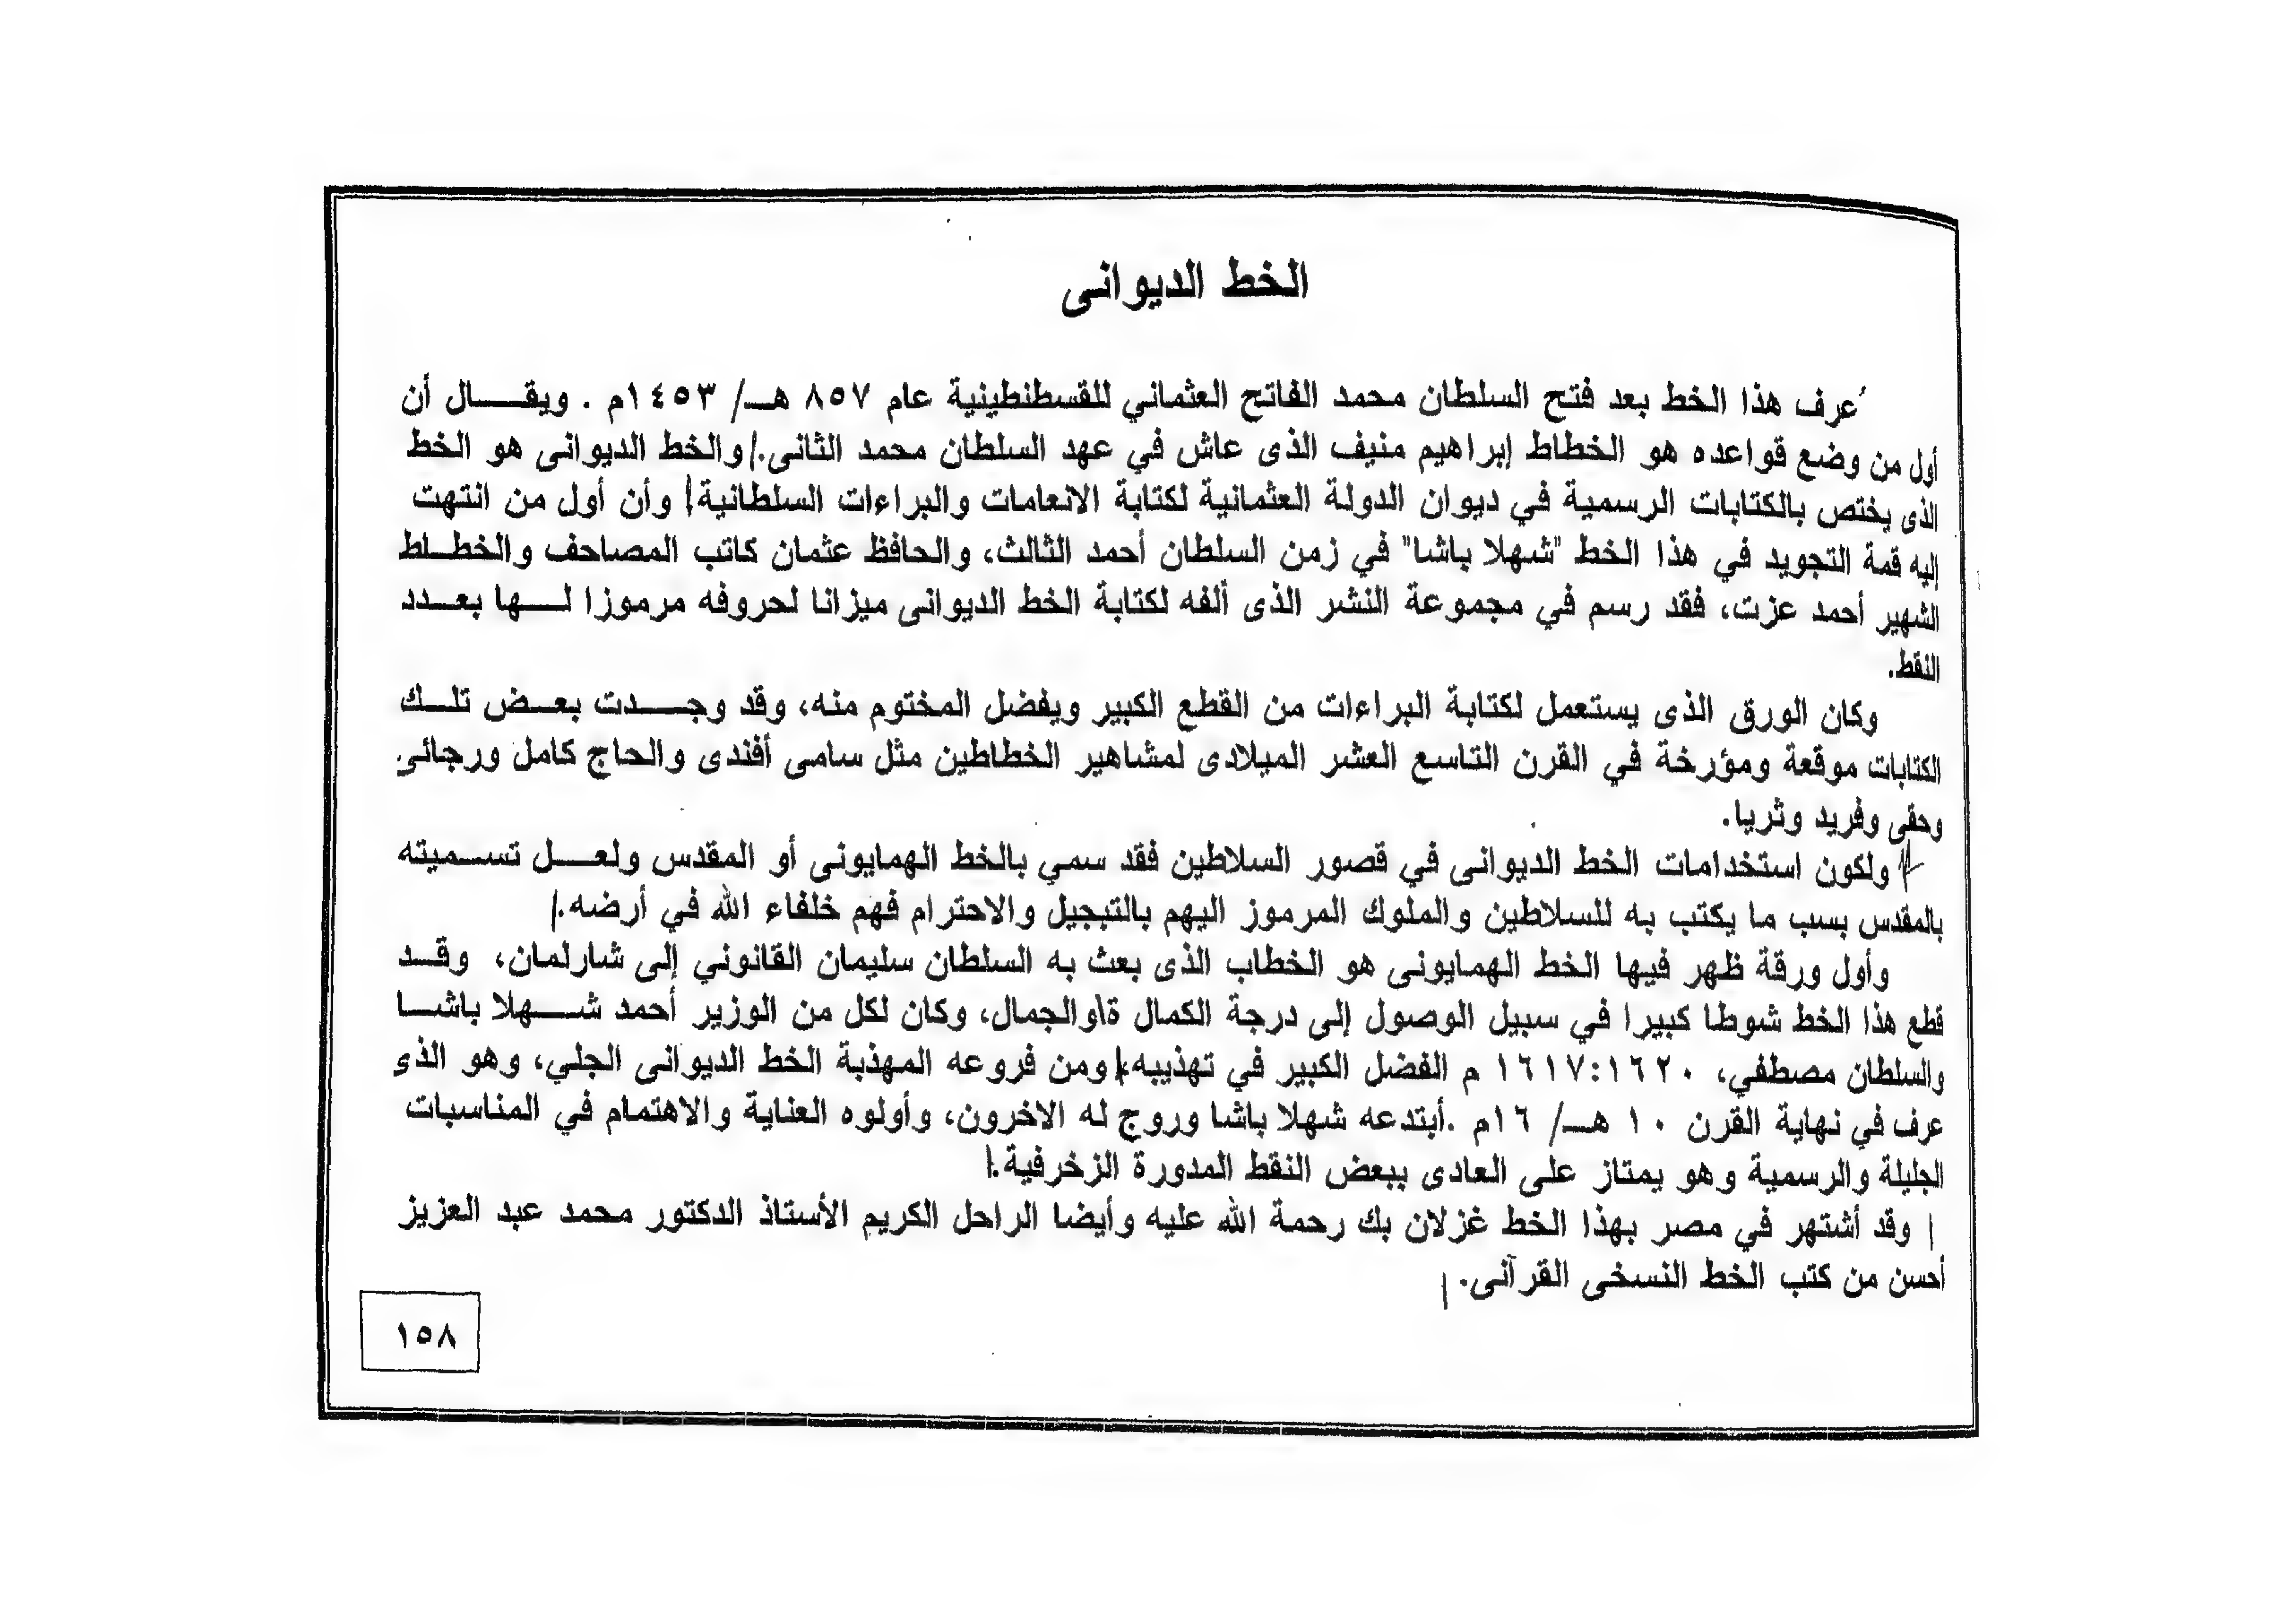 الخط الديوانى
عرف هذا الخط بعد فتح السلطان محمد الفاتح العثماني للقسطنطينية عام ٨٥٧ هـ/ ١٤٥٣م . ويقال أن
أول من وضع قواعده هو الخطاط إبراهيم منيف الذى عاش في عهد السلطان محمد الثانى. والخط الديوانى هو الخط
الذى يختص بالكتابات الرسمية في ديوان الدولة العثمانية لكتابة الانعامات والبراءات السلطانية وأن أول من انتهت
إليه قمة التجويد في هذا الخط "شهلا باشا" في زمن السلطان أحمد الثالث، والحافظ عثمان كاتب المصاحف والخطاط
الشهير أحمد عزت، فقد رسم في مجموعة النشر الذى ألفه لكتابة الخط الديوانى ميزانا لحروفه مرموزا لها بعدد
النقط.
وكان الورق الذى يستعمل لكتابة البراءات من القطع الكبير ويفضل المختوم منه، وقد وجدت بعض تلك
الكتابات موقعة ومؤرخة في القرن التاسع العشر الميلادى لمشاهير الخطاطين مثل سامى أفندى والحاج كامل ورجائى
وحقى وفريد وثريا.
ولكون استخدامات الخط الديوانى في قصور السلاطين فقد سمي بالخط الهمايونى أو المقدس ولعل تسميته
بالمقدس بسب ما يكتب به للسلاطين والملوك المرموز اليهم بالتبجيل والاحترام فهم خلفاء الله في أرضه.
وأول ورقة ظهر فيها الخط الهمايونى هو الخطاب الذى بعث به السلطان سليمان القانوني إلى شارلمان، وقد
قطع هذا الخط شوطا كبيرا في سبيل الوصول إلى درجة الكمال ة\والجمال، وكان لكل من الوزير أحمد شهلا باشا
والسلطان مصطفي، ١٦١٧:١٦٢٠ م الفضل الكبير في تهذيبه، ومن فروعه المهذبة الخط الديوانى الجلي، وهو الذى
عرف في نهاية القرن ١٠ هـ/ ١٦م .أبتدعه شهلا باشا وروج له الاخرون، وأولوه العناية والاهتمام في المناسبات
الجليلة والرسمية وهو يمتاز على العادى ببعض النقط المدورة الزخرفية.
وقد أشتهر في مصر بهذا الخط غزلان بك رحمة الله عليه وأيضا الراحل الكريم الأستاذ الدكتور محمد عبد العزيز
أحسن من كتب الخط النسخى القرآنى.
١٥٨